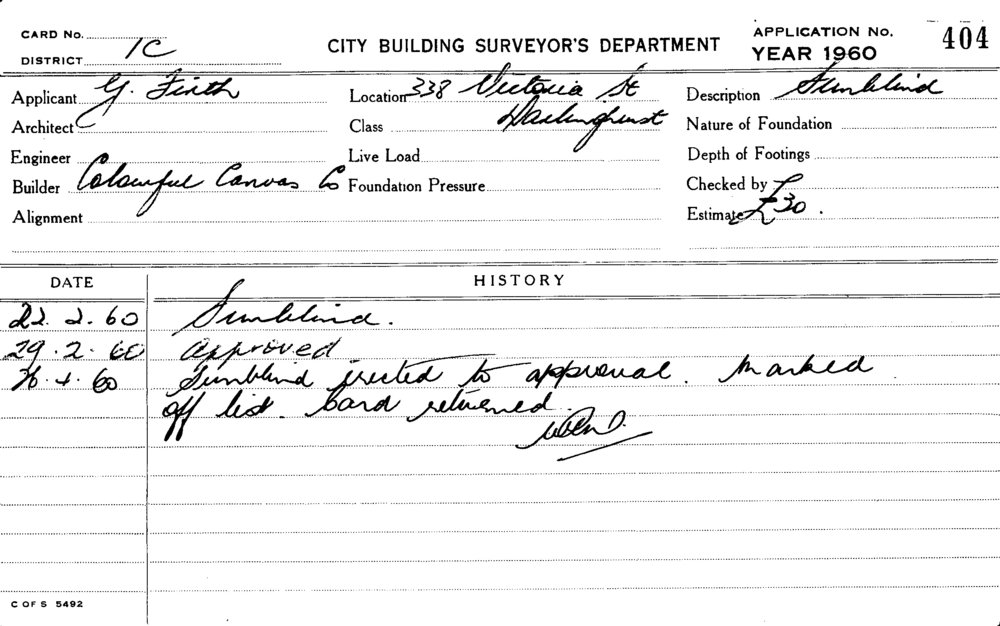 CARD No.
DISTRICT 1C
CITY BUILDING SURVEYOR'S DEPARTMENT
APPLICATION No. 404
YEAR 1960
Applicant G. Firth
Location 338 Victoria St
Description Sunblind
Architect
Class Darlinghurst
Nature of Foundation
Engineer
Live Load
Depth of Footings
Builder Colourful Canvas Co
Foundation Pressure
Checked by
Alignment
Estimate £30.
DATE
HISTORY
22. 2. 60 Sunblind.
29. 2. 60 Approved
26. 4. 60 Sunblind erected to approval. Marked
off list. Card returned.
C OF S 5492